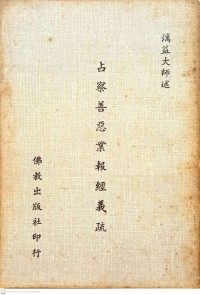 蕅益大師述
占察善惡業報經義疏
佛教出版社印行